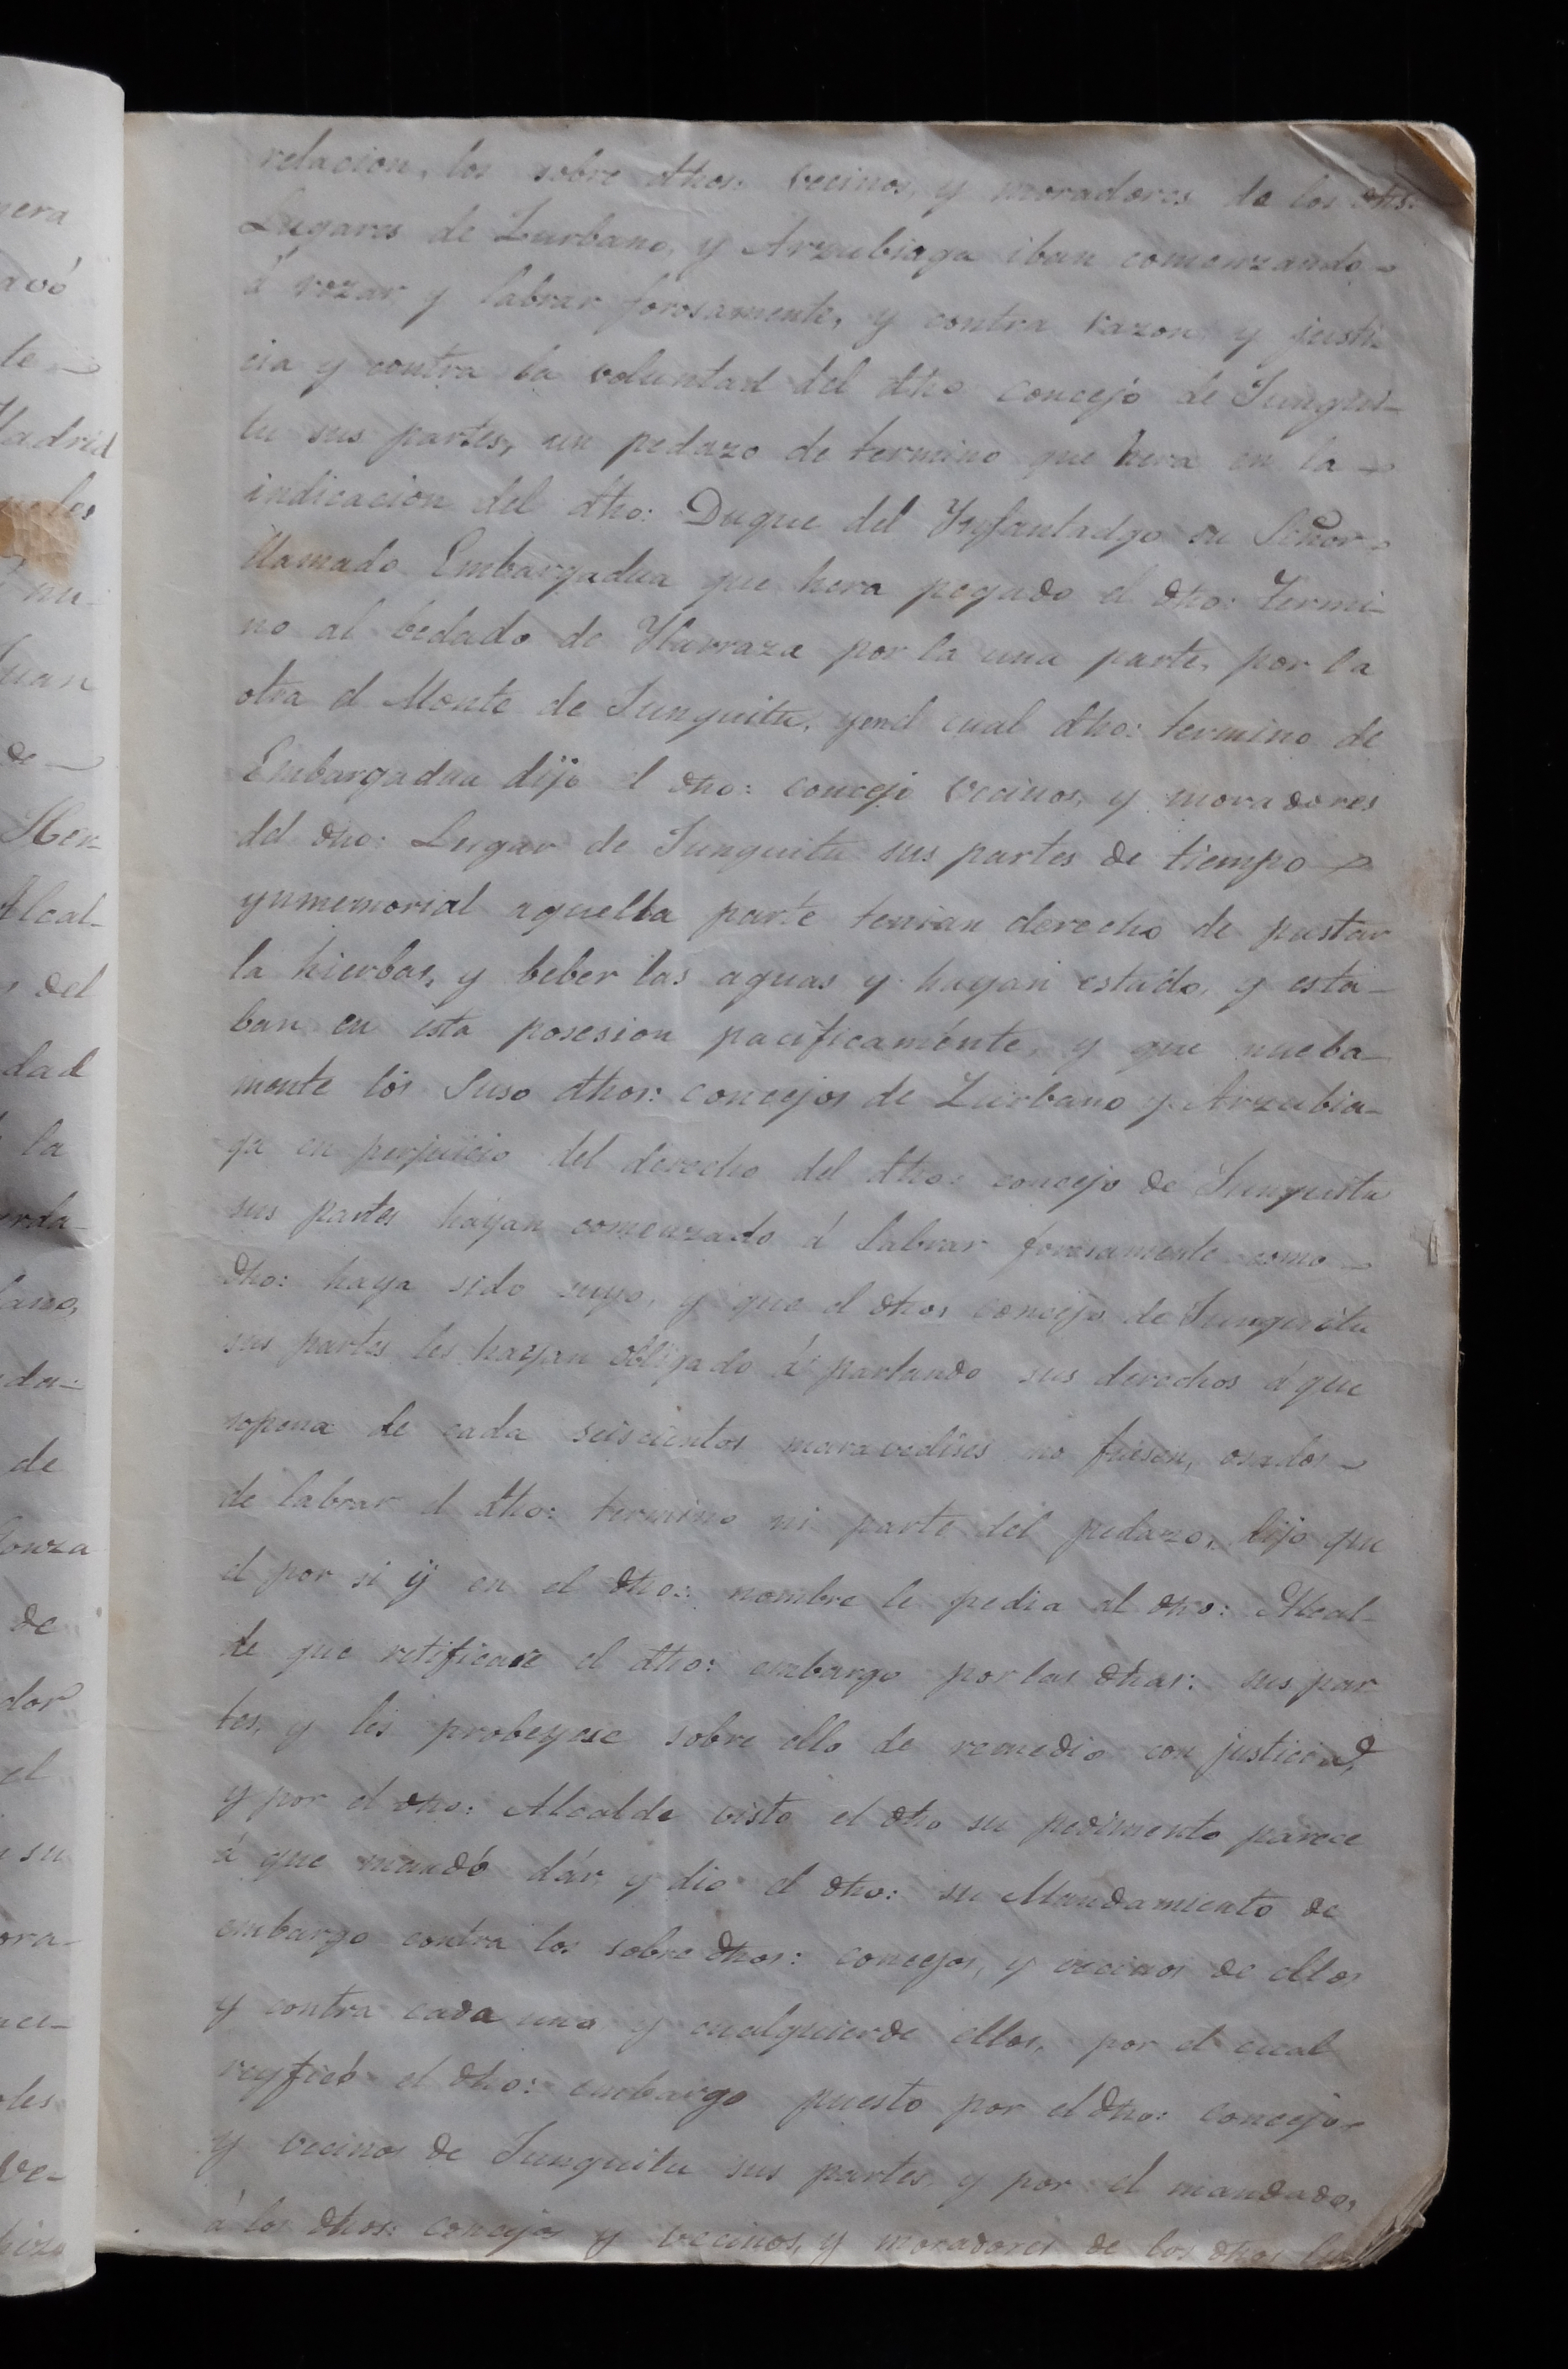 relacion, los sobre dthos: vecinos, y moradores de los dhs:
Lugares de Zurbano, y Arzubiaga iban comenzando
á rozar y labrar forosamente, y contra razon y justi
cia y contra la voluntad del dtho concejo de Jungui-
tu sus partes, un pedazo de termino que hera en la
indicacion del dtho: Duque del Ynfantadgo su Señor
llamado Embargadua que hera pegado el dho: termi-
no al bedado de Ybarraza por la una parte, por la
otra el Monte de Junguitu, yend cual dtho: termino de
Embargadua dijo el dho: concejo vecinos, y moradores
del dho: Lugar de Junguitu sus partes de tiempo
ynmemorial aquella parte tenian derecho de pastar
la hierbas, y beber las aguas y hayan estado, y esta-
ban en ésta posesion pacificaménte, y que nueba-
mente los Suso dthos: concejos de Zurbano y Arzubia-
ga en perjuicio del derecho del dtho: concejo de Junguitu
sus partes hayan comenzado á labrar forosamente como
dho: haya sido suyo, y que el dhos concejo de Junguitu
sus partes les hayan obligado á partando sus derechos á que
sopena de cada seiscientos maravedises no fuesen, osados
de labrar el dtho: termino ni parte del pedazo, dijo que
el por si ÿ en el dho: nombre le pedia al dho: Alcal-
de que retificase el dtho: embargo por las dhas: sus par
tes, y les probeyese sobre ello de remedio con justicia,
y por el dho: Alcalde visto el dho su pedimento parece
á que mandó dár y dio el dho: su Mandamiento de
embargo contra los sobre dhos: concejos, y vecinos de ellos
y contra cada uno y cualquierde ellos, por el cual
reyficó el dho: embargo puesto por el dho: concejo
y vecinos de Junguitu sus partes, y por el mandado,
á los dhos: concejos y vecinos, y moradores de los dhos